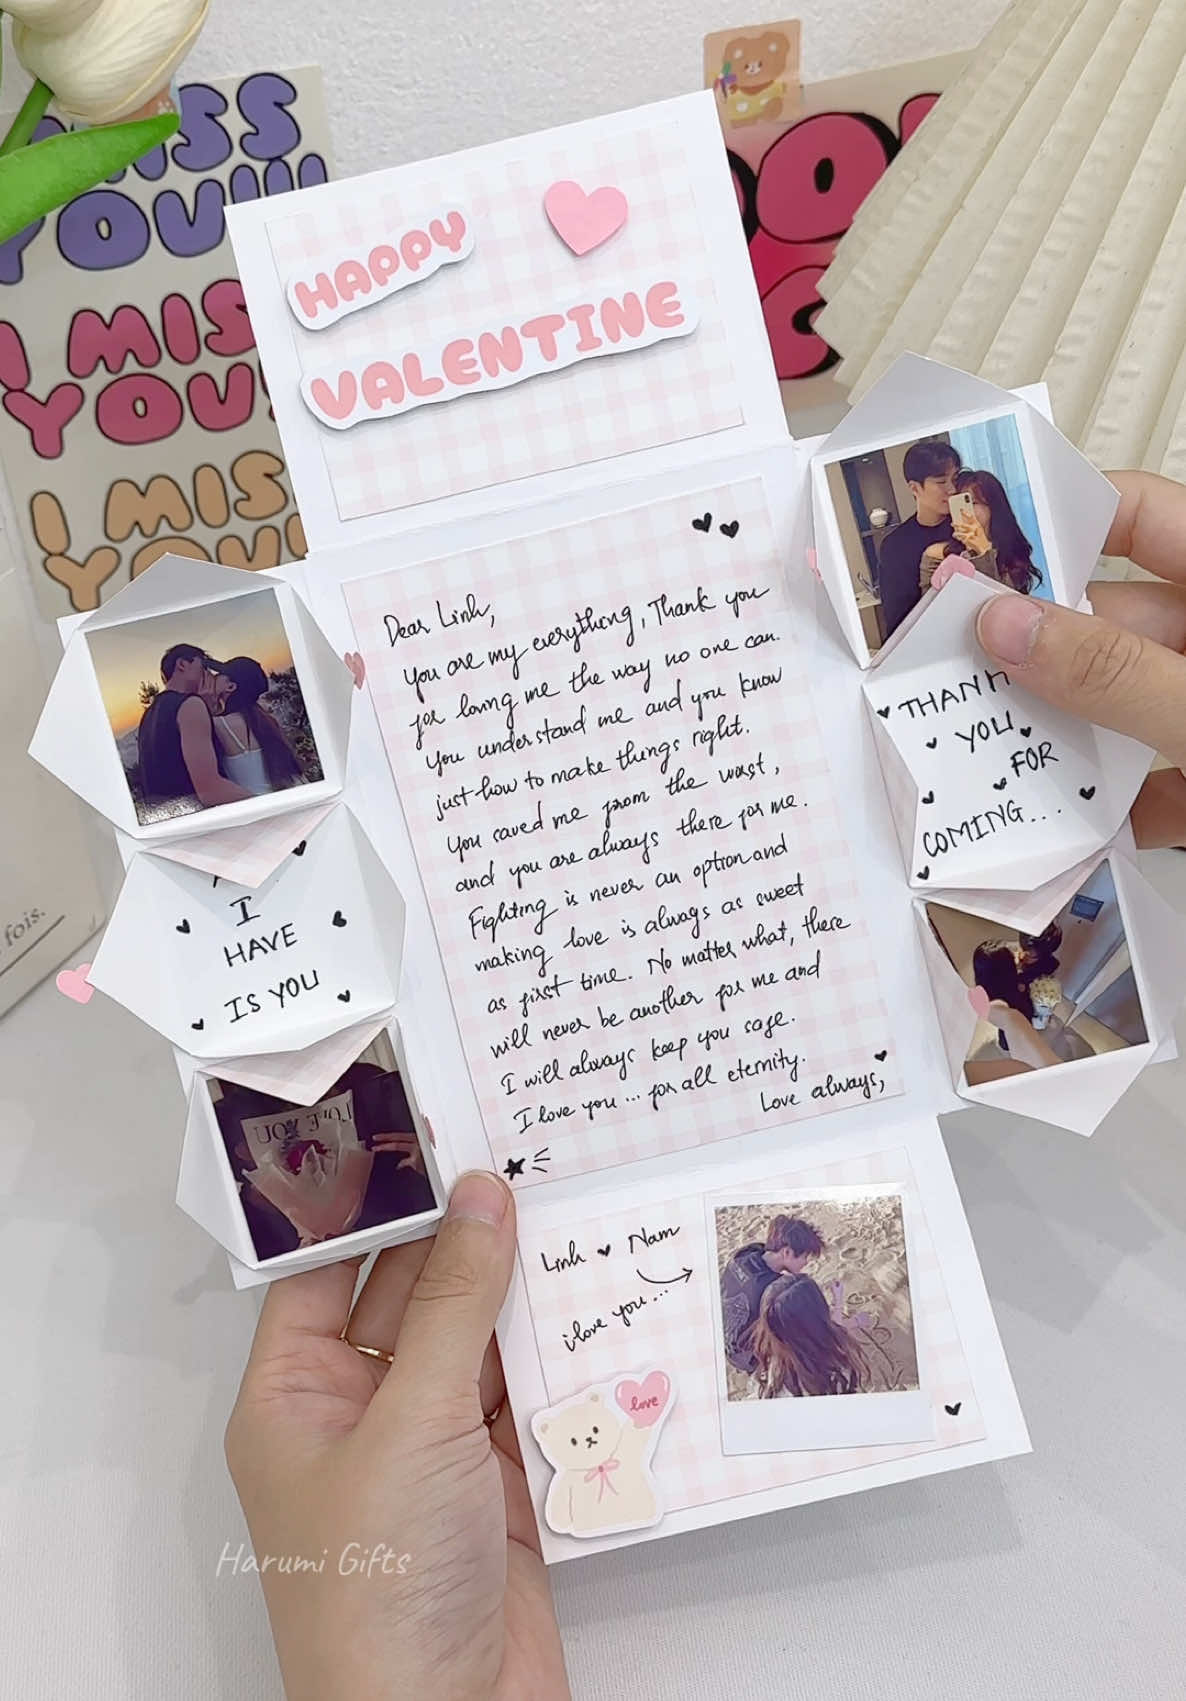 MISS
YOU!!!
I MIS
YOU!
I MIS
YOU
HAPPY
VALENTINE
Dear Linh,
You are my everything, Thank you
for loving me the way no one can.
You understand me and you know
just how to make things right.
You saved me from the worst,
and you are always there for me.
Fighting is never an option and
making love is always as sweet
as first time. No matter what, there
will never be another for me and
I will always keep you safe.
I love you... for all eternity.
Love always,
I
HAVE
IS YOU
THANK
YOU
FOR
COMING...
LOVE YOU
Linh Nam
i love you...
love
fois.
Harumi Gifts